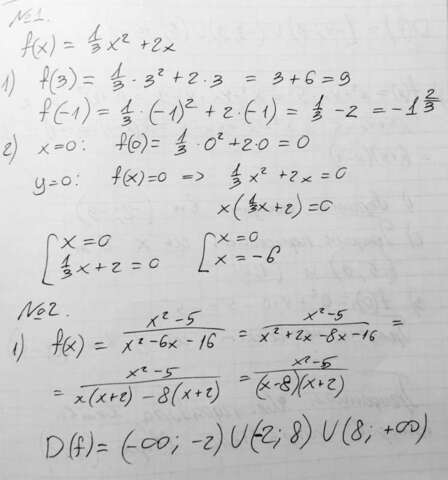 №1.
f(x) = 1/3 x² + 2x
1) f(3) = 1/3 · 3² + 2 · 3 = 3 + 6 = 9
f(-1) = 1/3 · (-1)² + 2 · (-1) = 1/3 - 2 = -1 2/3
2) x=0: f(0) = 1/3 · 0² + 2·0 = 0
y=0: f(x)=0 => 1/3 x² + 2x = 0
x(1/3 x + 2) = 0
[ x = 0 [ x = 0
1/3 x + 2 = 0 x = -6
№2.
1) f(x) = (x²-5)/(x²-6x-16) = (x²-5)/(x²+2x-8x-16) =
= (x²-5)/(x(x+2) - 8(x+2)) = (x²-5)/((x-8)(x+2))
D(f) = (-∞; -2) U (-2; 8) U (8; +∞)